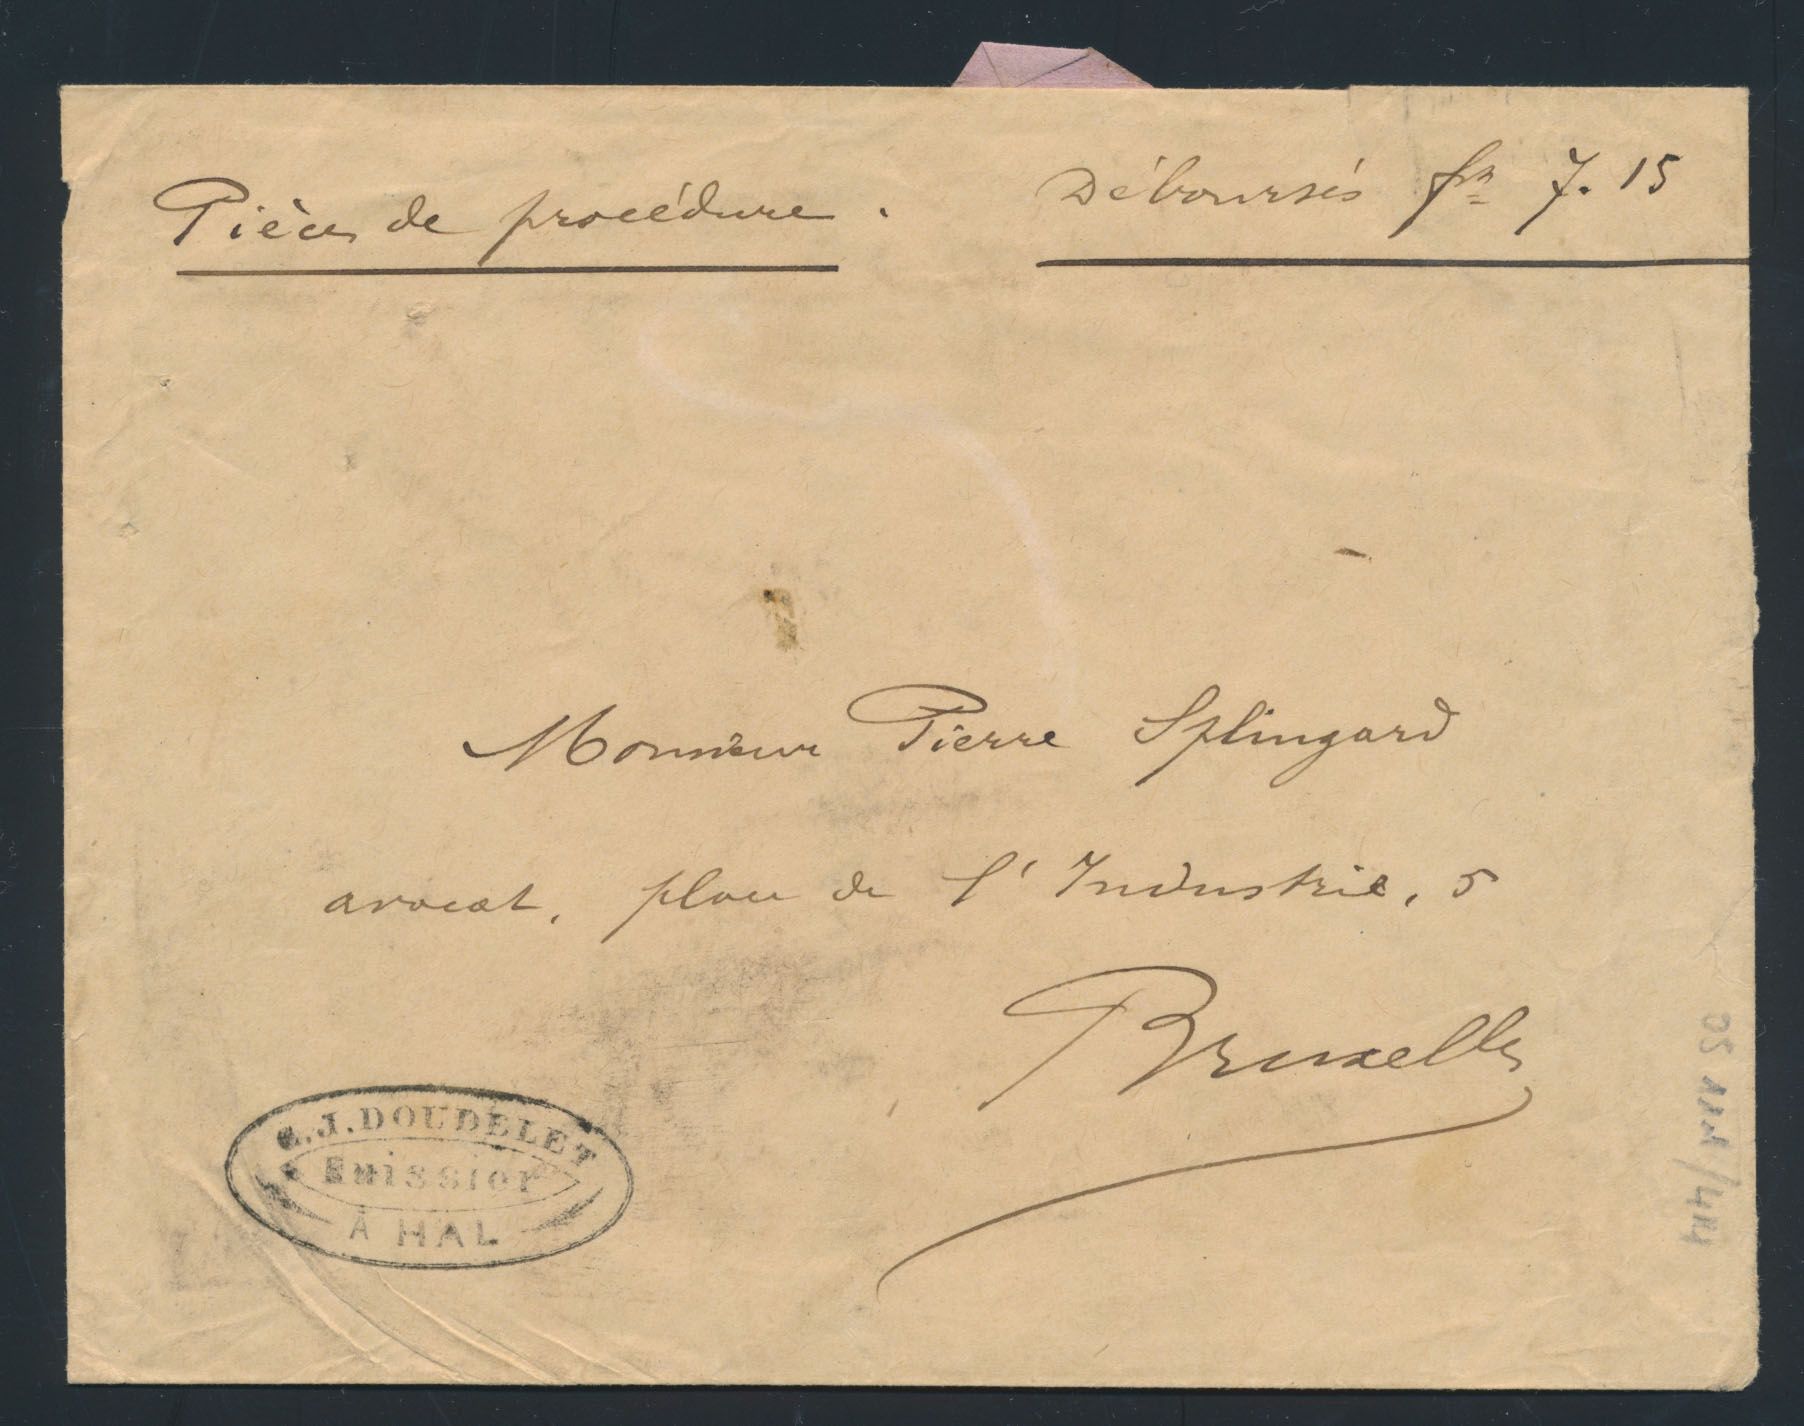 Pièces de procédure.
Déboursés frs 7.15
Monsieur Pierre Splingard
avocat, place de l'Industrie, 5
Bruxelles
J. DOUDELET
Huissier
À HAL